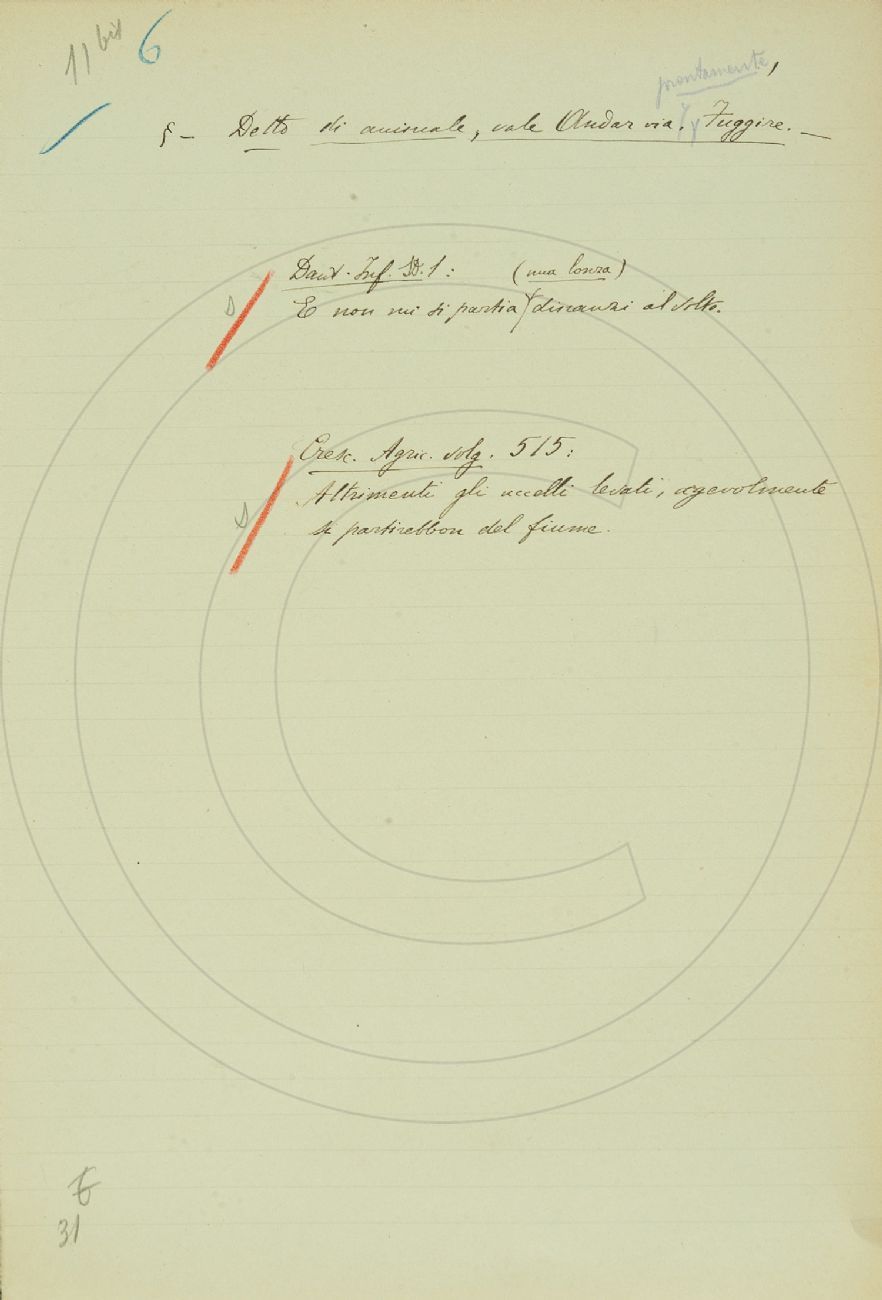 11 bis 6
prontamente,
§ – Detto di animale, vale Andar via. Fuggire. –
Dant. Inf. 1: (una lonza)
E non mi si partia dinanzi al volto.
Cresc. Agric. volg. 515:
Altrimenti gli uccelli levati, agevolmente
si partirebbon del fiume.
31